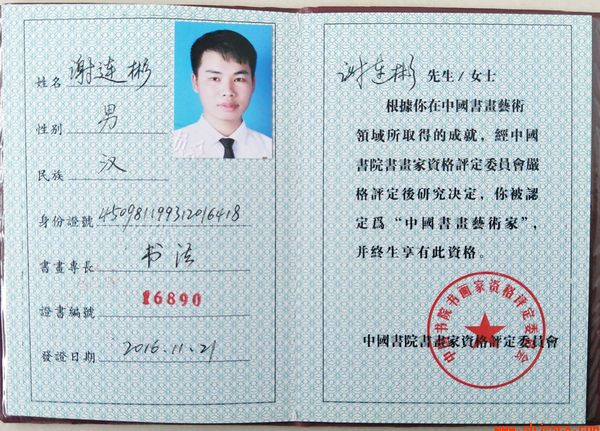 姓名 谢连彬
性别 男
民族 汉
身份證號 450981199312016418
書畫專長 书法
證書編號 16890
發證日期 2016.11.21
谢连彬 先生/女士
根據你在中國書畫藝術
領域所取得的成就，經中國
書院書畫家資格評定委員會嚴
格評定後研究决定，你被認
定爲“中國書畫藝術家”，
并終生享有此資格。
中国书院书画家资格评定委员会
中國書院書畫家資格評定委員會